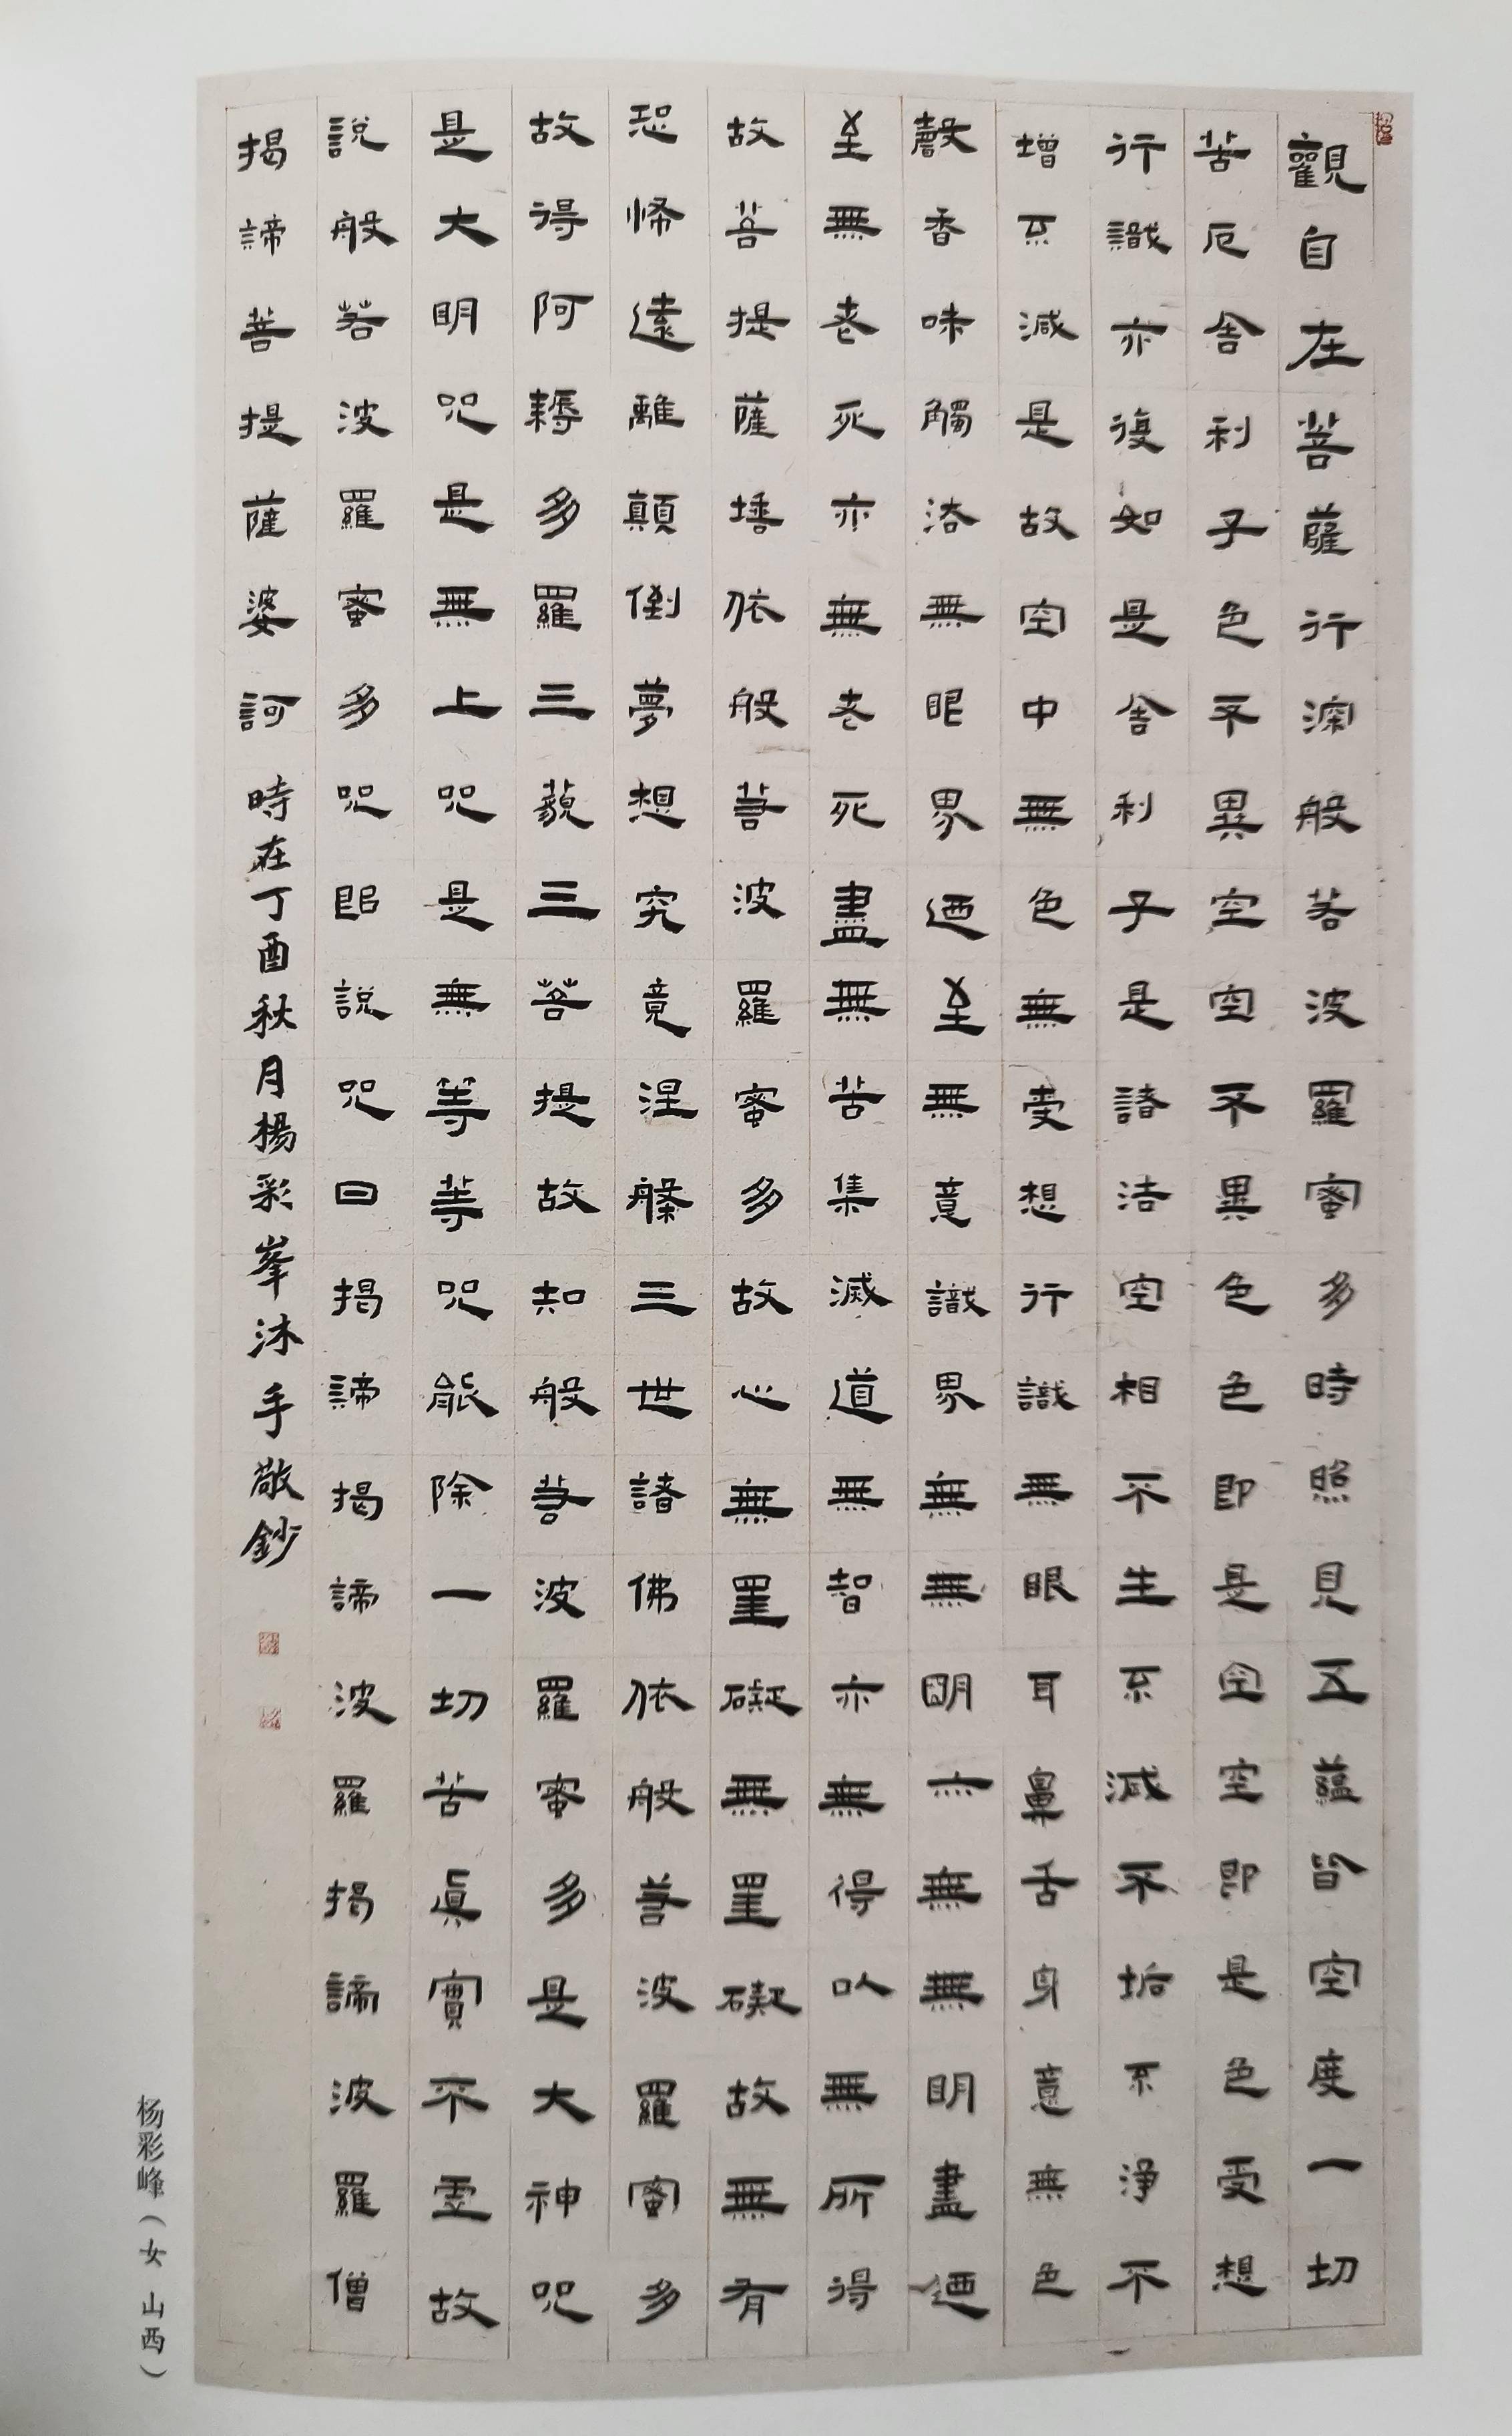 觀自在菩薩行深般若波羅蜜多時照見五蘊皆空度一切
苦厄舍利子色不異空空不異色色即是空空即是色受想
行識亦復如是舍利子是諸法空相不生不滅不垢不淨不
增不減是故空中無色無受想行識無眼耳鼻舌身意無色
聲香味觸法無眼界迺至無意識界無無明亦無無明盡迺
至無老死亦無老死盡無苦集滅道無智亦無得以無所得
故菩提薩埵依般若波羅蜜多故心無罣礙無罣礙故無有
恐怖遠離顛倒夢想究竟涅槃三世諸佛依般若波羅蜜多
故得阿耨多羅三藐三菩提故知般若波羅蜜多是大神咒
是大明咒是無上咒是無等等咒能除一切苦真實不虛故
說般若波羅蜜多咒即說咒曰揭諦揭諦波羅揭諦波羅僧
揭諦菩提薩婆訶 時在丁酉秋月楊彩峯沐手敬鈔
杨彩峰（女 山西）